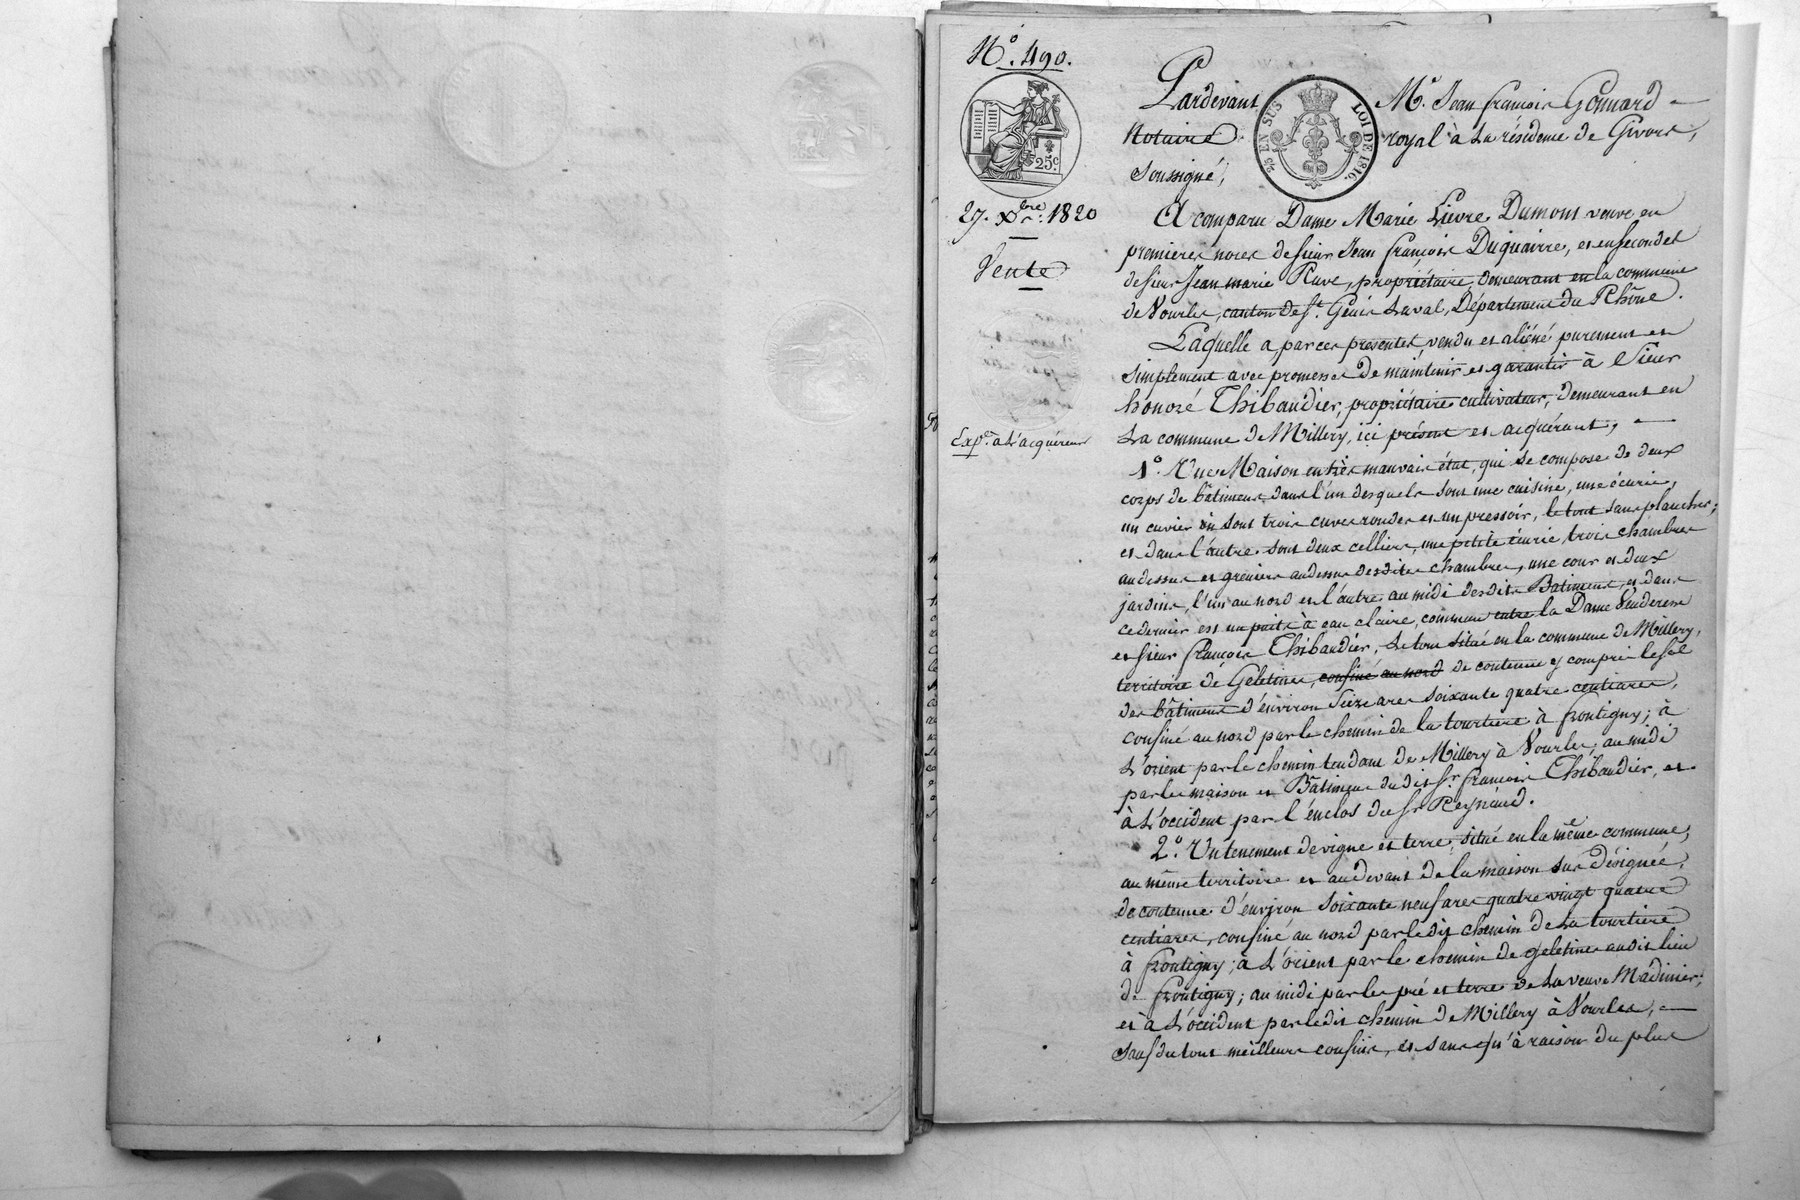 N.º 490.
25.c
27. Xbre. 1820
Vente
Expé. à L'acquéreur
Pardevant Mre. Jean françois Gonnard
Notaire royal à La résidence de Givors,
25 EN SUS LOI DE 1816.
Soussigné;
A comparu Dame Marie Lièvre Dumont veuve en
premieres noces de sieur Jean françois Duquaire, et en secondes
de sieur Jean marie Rave, propriétaire, demeurant en la commune
de Vourles, canton de St. Génis Laval, Département du Rhône.
Laquelle a, par ces présentes, vendu et aliéné purement et
simplement avec promesse de maintenir et garantir à Sieur
honoré Thibaudier, propriétaire cultivateur, demeurant en
La commune de Millery, ici présent et acquérant,
1º. Une Maison en très mauvais état, qui se compose de deux
corps de bâtiment, dans l'un desquels sont une cuisine, une écurie,
un cuvier où sont trois cuves rondes et un pressoir, le tout sans plancher;
et dans l'autre sont deux celliers, une petite écurie trois chambres
audessus et greniers audessus desdites chambres, une cour et deux
jardins, l'un au nord et l'autre au midi desdits Bâtiments, et dans
ce dernier est un puits à eau claire, commun entre la Dame Venderesse
et sieur françois Thibaudier, Le tout situé en la commune de Millery,
territoire de Geletines, confiné au nord de contenue y compris le sol
des bâtiments d'environ Seize ares soixante quatre centiares,
confiné au nord par le chemin de la tourtiere à frontigny; à
L'orient par le chemin tendant de Millery à Vourles; au midi
par les maison et Bâtiment dudit Sr. françois Thibaudier, et
à L'occident par l'enclos du Sr Reynaud.
2º. Un tenement de vigne et terre, situé en la même commune,
au même territoire et au devant de la maison sus désignée,
de contenue d'environ soixante neuf ares quatre vingt quatre
centiares, confiné au nord par ledit chemin de La tourtiere
à frontigny; à L'orient par le chemin de geletines audit lieu
de frontigny; au midi par les pré et terre de La veuve Madinier;
et à L'occident par ledit chemin de Millery à Vourles,
sauf du tout meilleurs confins, et sans qu'à raison du plus